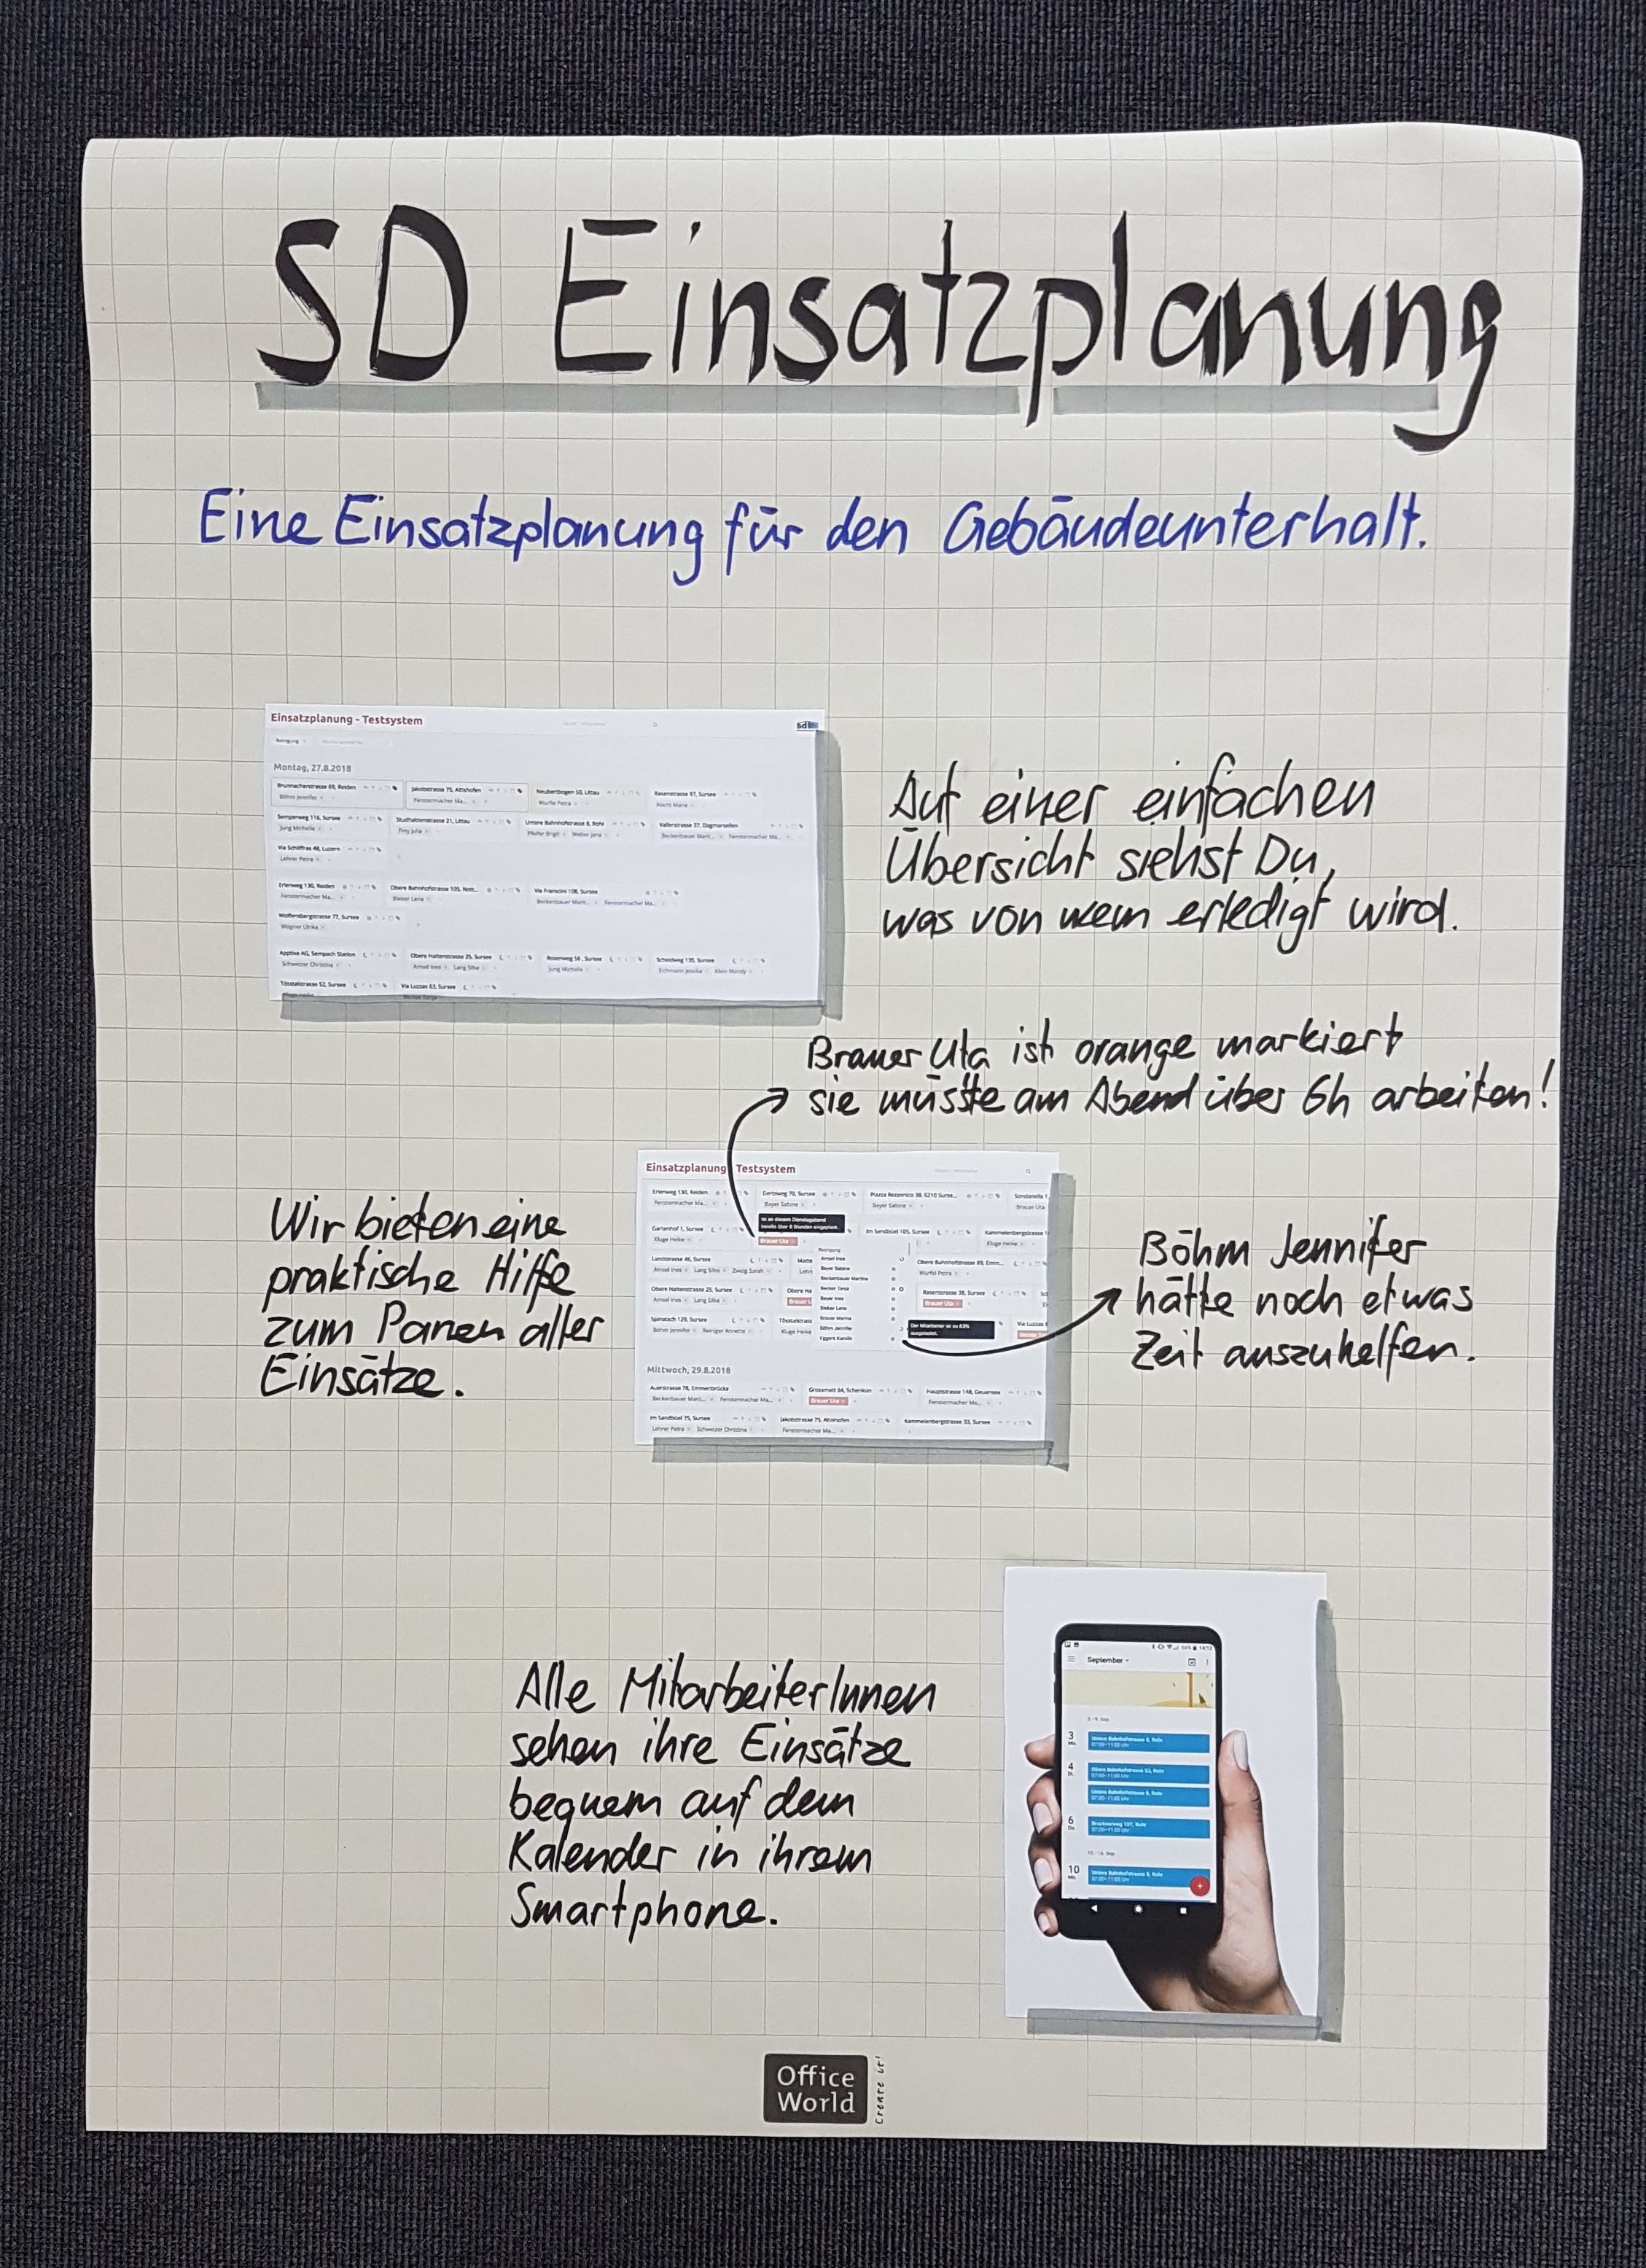 SD Einsatzplanung
Eine Einsatzplanung für den Gebäudeunterhalt.
Einsatzplanung - Testsystem
Reinigung
Montag, 27.8.2018
Brunnacherstrasse 69, Reiden
Böhm Jennifer
Jakobstrasse 75, Altishofen
Fenstermacher Ma...
Neuberbogen 50, Littau
Wurfel Petra
Rasenstrasse 97, Sursee
Kocht Marie
Semperweg 116, Sursee
Jung Michelle
Studhaldenstrasse 21, Littau
Frey Julia
Untere Bahnhofstrasse 8, Rohr
Pfeifer Brigit Weber Jana
Vallerstrasse 37, Dagmersellen
Beckenbauer Marti... Fenstermacher Ma...
Via Schliffras 48, Luzern
Lehrer Petra
Erlenweg 130, Reiden
Fenstermacher Ma...
Obere Bahnhofstrasse 105, Nott...
Bieber Lena
Via Franscini 108, Sursee
Beckenbauer Marti... Fenstermacher Ma...
Wolfensbergstrasse 77, Sursee
Wagner Ulrike
Apptiva AG, Sempach Station
Schweizer Christina
Obere Haltenstrasse 25, Sursee
Amsel Ines Lang Silke
Rosenweg 56, Sursee
Jung Michelle
Scheidweg 135, Sursee
Eichmann Jessika Klein Mandy
Tösstalstrasse 52, Sursee
Via Luzzas 63, Sursee
Auf einer einfachen
Übersicht siehst Du,
was von wem erledigt wird.
Brauer Uta ist orange markiert
sie müsste am Abend über 6h arbeiten!
Wir bieten eine
praktische Hilfe
zum Panen aller
Einsätze.
Einsatzplanung Testsystem
Erlenweg 130, Reiden
Fenstermacher Ma...
Gerbiweg 70, Sursee
Bayer Sabine
Piazza Rezzonico 38, 6210 Surse...
Bayer Sabine
Sondanella 1
Brauer Uta
Gartenhof 1, Sursee
Kluge Heike
Ist an diesem Dienstagabend
bereits über 8 Stunden eingeplant.
Brauer Uta
Im Sandbüel 105, Sursee
Kammelenbergstrasse 1
Kluge Heike
Landstrasse 46, Sursee
Amsel Ines Lang Silke Zweig Sarah
Reinigung
Amsel Ines
Bayer Sabine
Beckenbauer Martina
Becker Tanja
Beyer Ines
Bieber Lena
Brauer Marina
Böhm Jennifer
Eggers Karolin
Obere Bahnhofstrasse 89, Emm...
Wurfel Petra
Obere Haltenstrasse 25, Sursee
Amsel Ines Lang Silke
Obere Ha
Brauer U
Rasenstrasse 38, Sursee
Brauer Uta
Spinatsch 129, Sursee
Böhm Jennifer Reiniger Annette
Tösstalstrass
Kluge Heike
Der Mitarbeiter ist zu 63%
ausgelastet.
Via Luzzas
Mittwoch, 29.8.2018
Auerstrasse 78, Emmenbrücke
Beckenbauer Marti... Fenstermacher Ma...
Grossmatt 64, Schenkon
Brauer Uta
Hauptstrasse 148, Geuensee
Fenstermacher Ma...
Im Sandbüel 75, Sursee
Lehrer Petra Schweizer Christina
Jakobstrasse 75, Altishofen
Fenstermacher Ma...
Kammelenbergstrasse 33, Sursee
Böhm Jennifer
hätte noch etwas
Zeit auszuhelfen.
Alle MitarbeiterInnen
sehen ihre Einsätze
bequem auf dem
Kalender in ihrem
Smartphone.
14:12
September
3.-9. Sep.
3
Mo.
Untere Bahnhofstrasse 8, Rohr
07:00–11:00 Uhr
4
Di.
Obere Bahnhofstrasse 53, Rohr
07:00–11:00 Uhr
Untere Bahnhofstrasse 8, Rohr
07:00–11:00 Uhr
6
Do.
Brucknerweg 107, Rohr
07:00–11:00 Uhr
10.–16. Sep.
10
Mo.
Untere Bahnhofstrasse 8, Rohr
07:00–11:00 Uhr
Office
World
Create it!